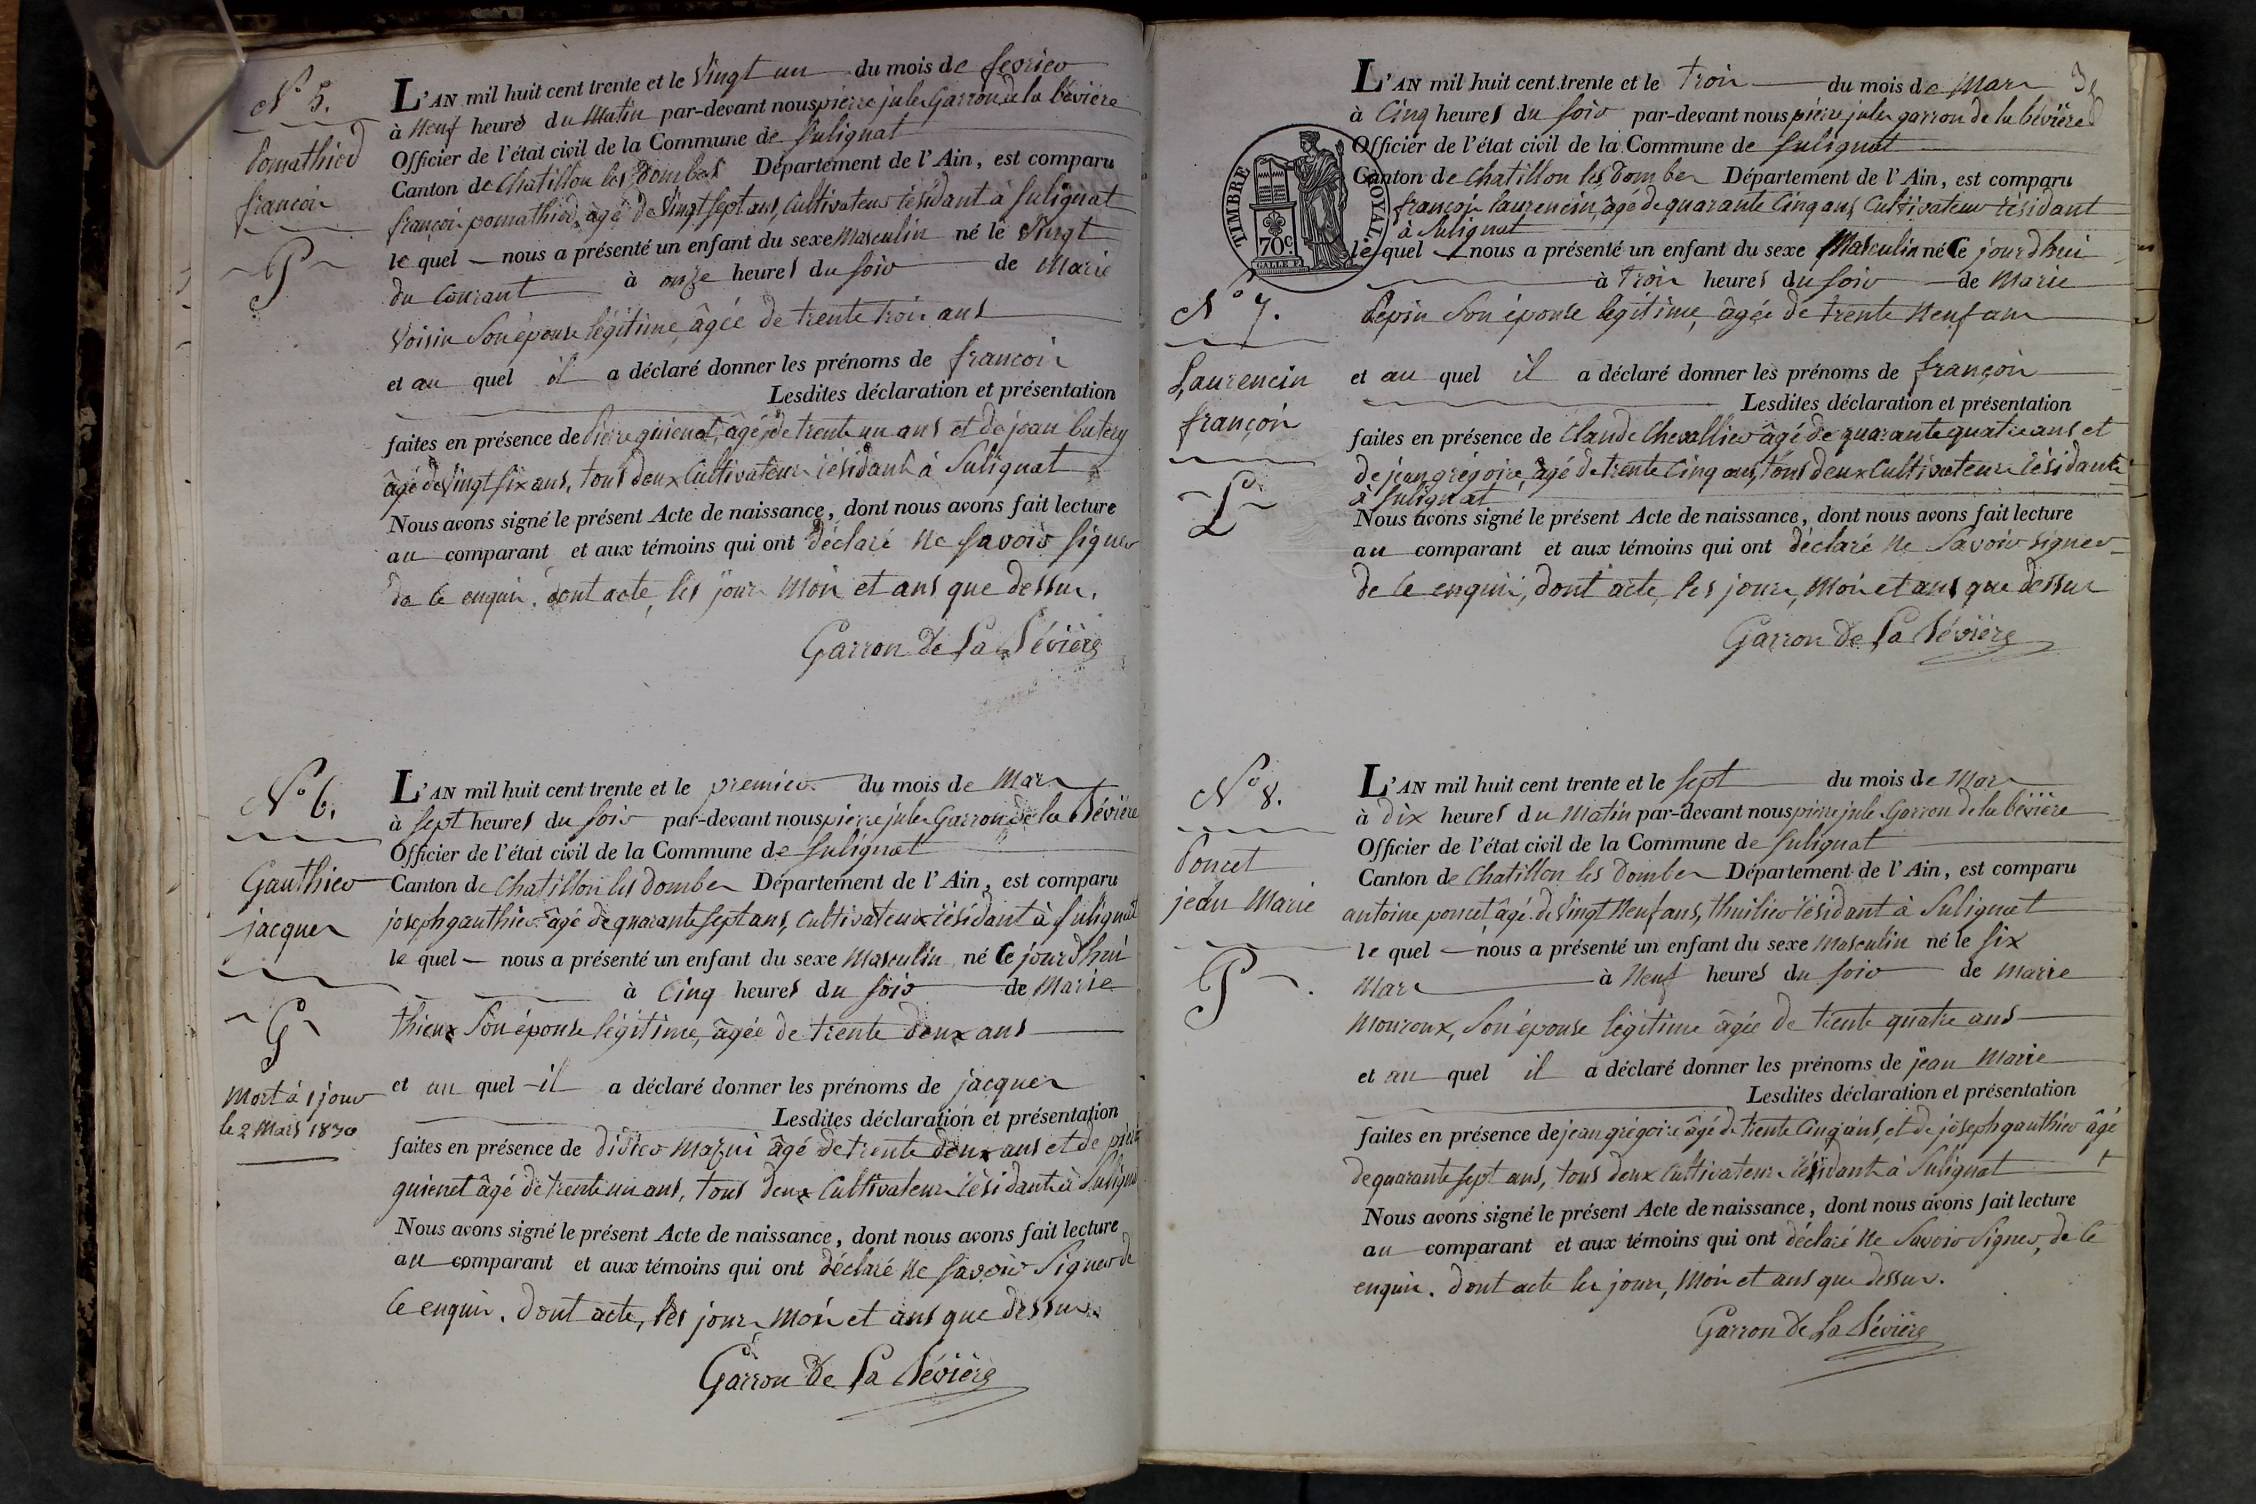 N° 5.
Pomathiod
françois
P
L'AN mil huit cent trente et le Vingt un du mois de fevrier
à Neuf heures du Matin par-devant nous pierre jules Garron de la bévière
Officier de l'état civil de la Commune de Sulignat
Canton de Chatillon les Dombes Département de l'Ain, est comparu
françois pomathiod, âgé de Vingt sept ans, Cultivateur résidant à Sulignat
le quel nous a présenté un enfant du sexe Masculin né le Vingt
du Courant à onze heures du soir de Marie
Voisin Son épouse légitime, âgée de trente trois ans
et au quel il a déclaré donner les prénoms de françois
Lesdites déclaration et présentation
faites en présence de Pierre guienet, âgé de trente un ans et de jean butery
âgé de Vingt six ans, tous deux Cultivateurs résidants à Sulignat
Nous avons signé le présent Acte de naissance, dont nous avons fait lecture
au comparant et aux témoins qui ont déclaré Ne savoir signer
de ce enquis. dont acte, les jours Mois et ans que dessus.
Garron De La Bévière
N° 6.
Gauthier
jacques
G
Mort à 1 jour
le 2 Mars 1830
L'AN mil huit cent trente et le premier du mois de Mars
à sept heures du soir par-devant nous pierre jules Garron de la Bévière
Officier de l'état civil de la Commune de Sulignat
Canton de Chatillon les Dombes Département de l'Ain, est comparu
joseph gauthier âgé de quarante sept ans, Cultivateur résidant à Sulignat
le quel nous a présenté un enfant du sexe Masculin né Ce jourd'hui
à Cinq heures du soir de Marie
thieux Son épouse légitime, âgée de trente deux ans
et au quel il a déclaré donner les prénoms de jacques
Lesdites déclaration et présentation
faites en présence de didier Mazui âgé de trente deux ans et de pierre
guienet âgé de trente un ans, tous deux Cultivateurs résidants à Sulignat
Nous avons signé le présent Acte de naissance, dont nous avons fait lecture
au comparant et aux témoins qui ont déclaré Ne savoir Signer de
Ce enquis. dont acte, les jours, Mois et ans que dessus.
Garron De La Bévière
TIMBRE ROYAL.
70c
N° 7.
Laurencin
françois
L
L'AN mil huit cent trente et le trois du mois de Mars
à Cinq heures du soir par-devant nous pierre jules garron de la bévière
Officier de l'état civil de la Commune de Sulignat
Canton de Chatillon les Dombes Département de l'Ain, est comparu
françois laurencin, âgé de quarante Cinq ans Cultivateur résidant
à Sulignat
le quel nous a présenté un enfant du sexe Masculin né Ce jourd'hui
à trois heures du soir de Marie
Pepin Son épouse légitime, âgée de trente Neuf ans
et au quel il a déclaré donner les prénoms de françois
Lesdites déclaration et présentation
faites en présence de Claude Chevallier âgé de quarante quatre ans et
de jean grégoire, âgé de trente Cinq ans, tous deux Cultivateurs résidants
à Sulignat
Nous avons signé le présent Acte de naissance, dont nous avons fait lecture
au comparant et aux témoins qui ont déclaré Ne Savoir signer
de Ce enquis, dont acte, les jours, Mois et ans que dessus
Garron De La Bévière
N° 8.
Poncet
jean Marie
P
L'AN mil huit cent trente et le sept du mois de Mars
à dix heures du Matin par-devant nous pierre jules Garron de la bévière
Officier de l'état civil de la Commune de Sulignat
Canton de Chatillon les Dombes Département de l'Ain, est comparu
antoine poncet, âgé de Vingt Neuf ans, thuilier résidant à Sulignat
le quel nous a présenté un enfant du sexe Masculin né le six
Mars à Neuf heures du soir de Marie
Mouroux, Son épouse légitime âgée de trente quatre ans
et au quel il a déclaré donner les prénoms de jean Marie
Lesdites déclaration et présentation
faites en présence de jean grégoire âgé de trente Cinq ans, et de joseph gauthier âgé
de quarante sept ans, tous deux Cultivateurs résidants à Sulignat
Nous avons signé le présent Acte de naissance, dont nous avons fait lecture
au comparant et aux témoins qui ont déclaré Ne Savoir Signer, de Ce
enquis. dont acte les jours, Mois et ans que dessus.
Garron De La Bévière